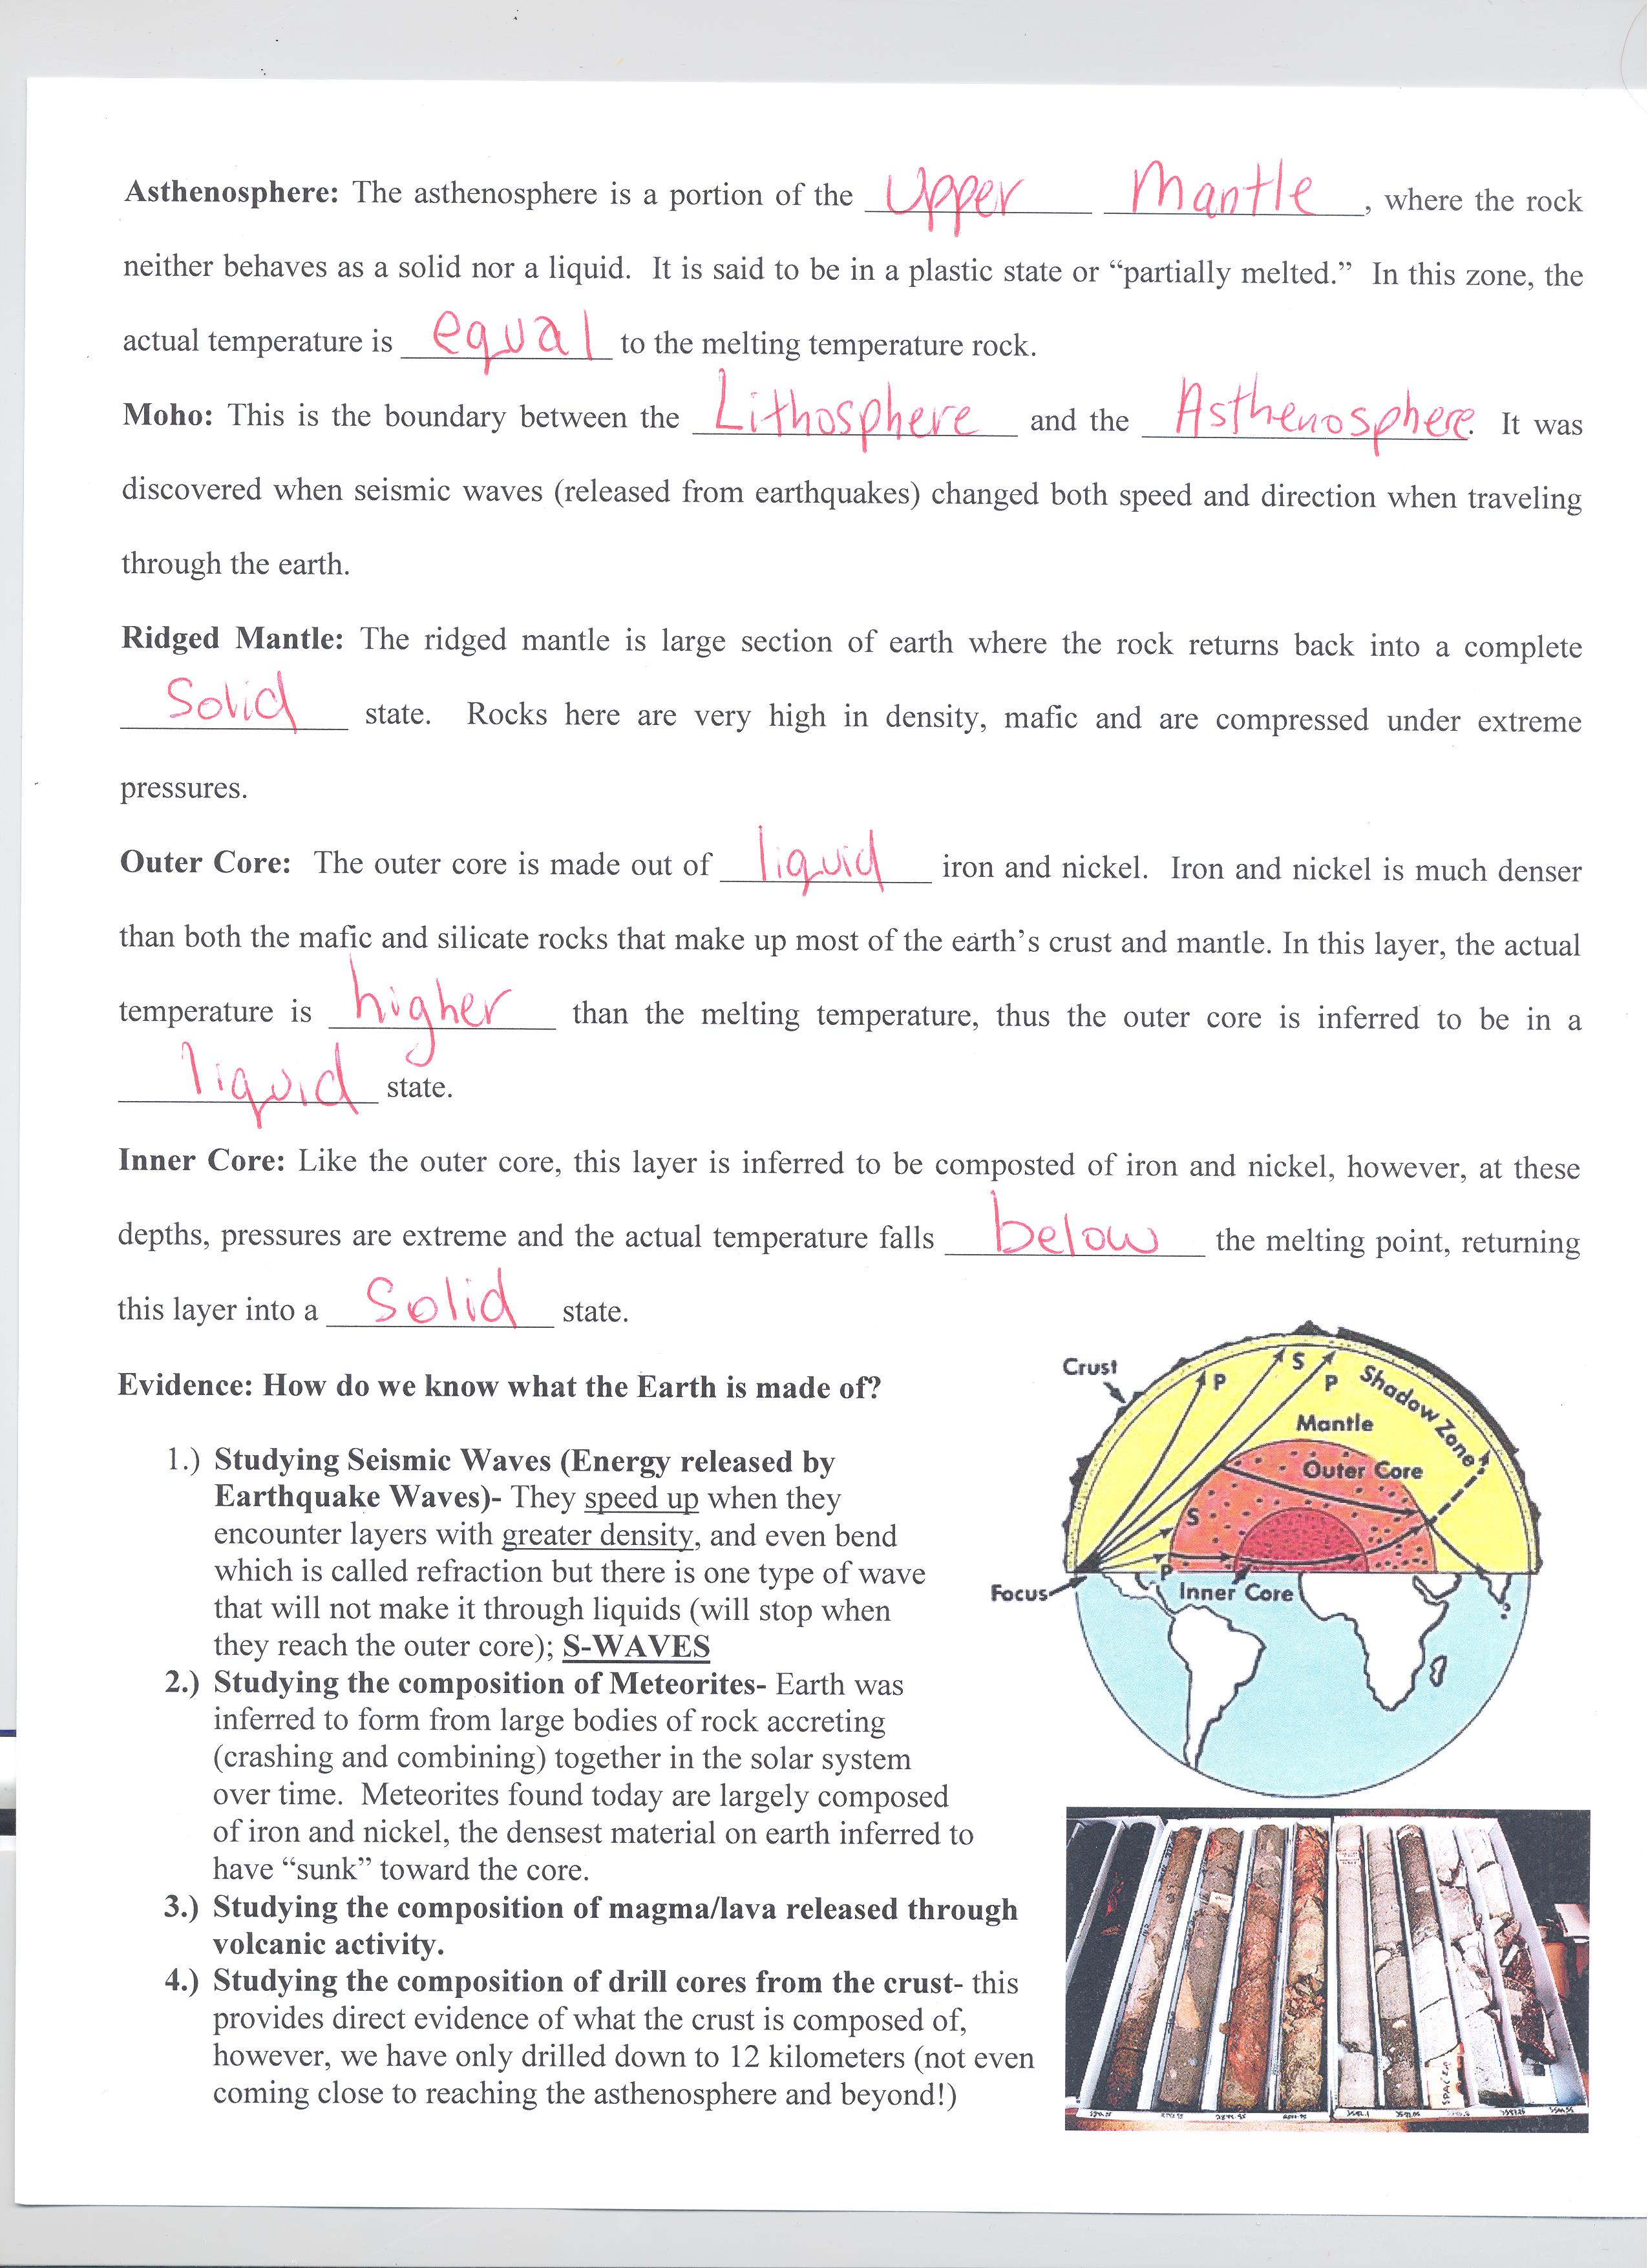 Asthenosphere: The asthenosphere is a portion of the Upper Mantle, where the rock
neither behaves as a solid nor a liquid. It is said to be in a plastic state or “partially melted.” In this zone, the
actual temperature is equal to the melting temperature rock.
Moho: This is the boundary between the Lithosphere and the Asthenosphere. It was
discovered when seismic waves (released from earthquakes) changed both speed and direction when traveling
through the earth.
Ridged Mantle: The ridged mantle is large section of earth where the rock returns back into a complete
Solid state. Rocks here are very high in density, mafic and are compressed under extreme
pressures.
Outer Core: The outer core is made out of liquid iron and nickel. Iron and nickel is much denser
than both the mafic and silicate rocks that make up most of the earth’s crust and mantle. In this layer, the actual
temperature is higher than the melting temperature, thus the outer core is inferred to be in a
liquid state.
Inner Core: Like the outer core, this layer is inferred to be composted of iron and nickel, however, at these
depths, pressures are extreme and the actual temperature falls below the melting point, returning
this layer into a Solid state.
Evidence: How do we know what the Earth is made of?
1.) Studying Seismic Waves (Energy released by
Earthquake Waves)- They speed up when they
encounter layers with greater density, and even bend
which is called refraction but there is one type of wave
that will not make it through liquids (will stop when
they reach the outer core); S-WAVES
2.) Studying the composition of Meteorites- Earth was
inferred to form from large bodies of rock accreting
(crashing and combining) together in the solar system
over time. Meteorites found today are largely composed
of iron and nickel, the densest material on earth inferred to
have “sunk” toward the core.
3.) Studying the composition of magma/lava released through
volcanic activity.
4.) Studying the composition of drill cores from the crust- this
provides direct evidence of what the crust is composed of,
however, we have only drilled down to 12 kilometers (not even
coming close to reaching the asthenosphere and beyond!)
Crust
P
S
P
Shadow Zone
Mantle
Outer Core
S
P
Focus
Inner Core
?